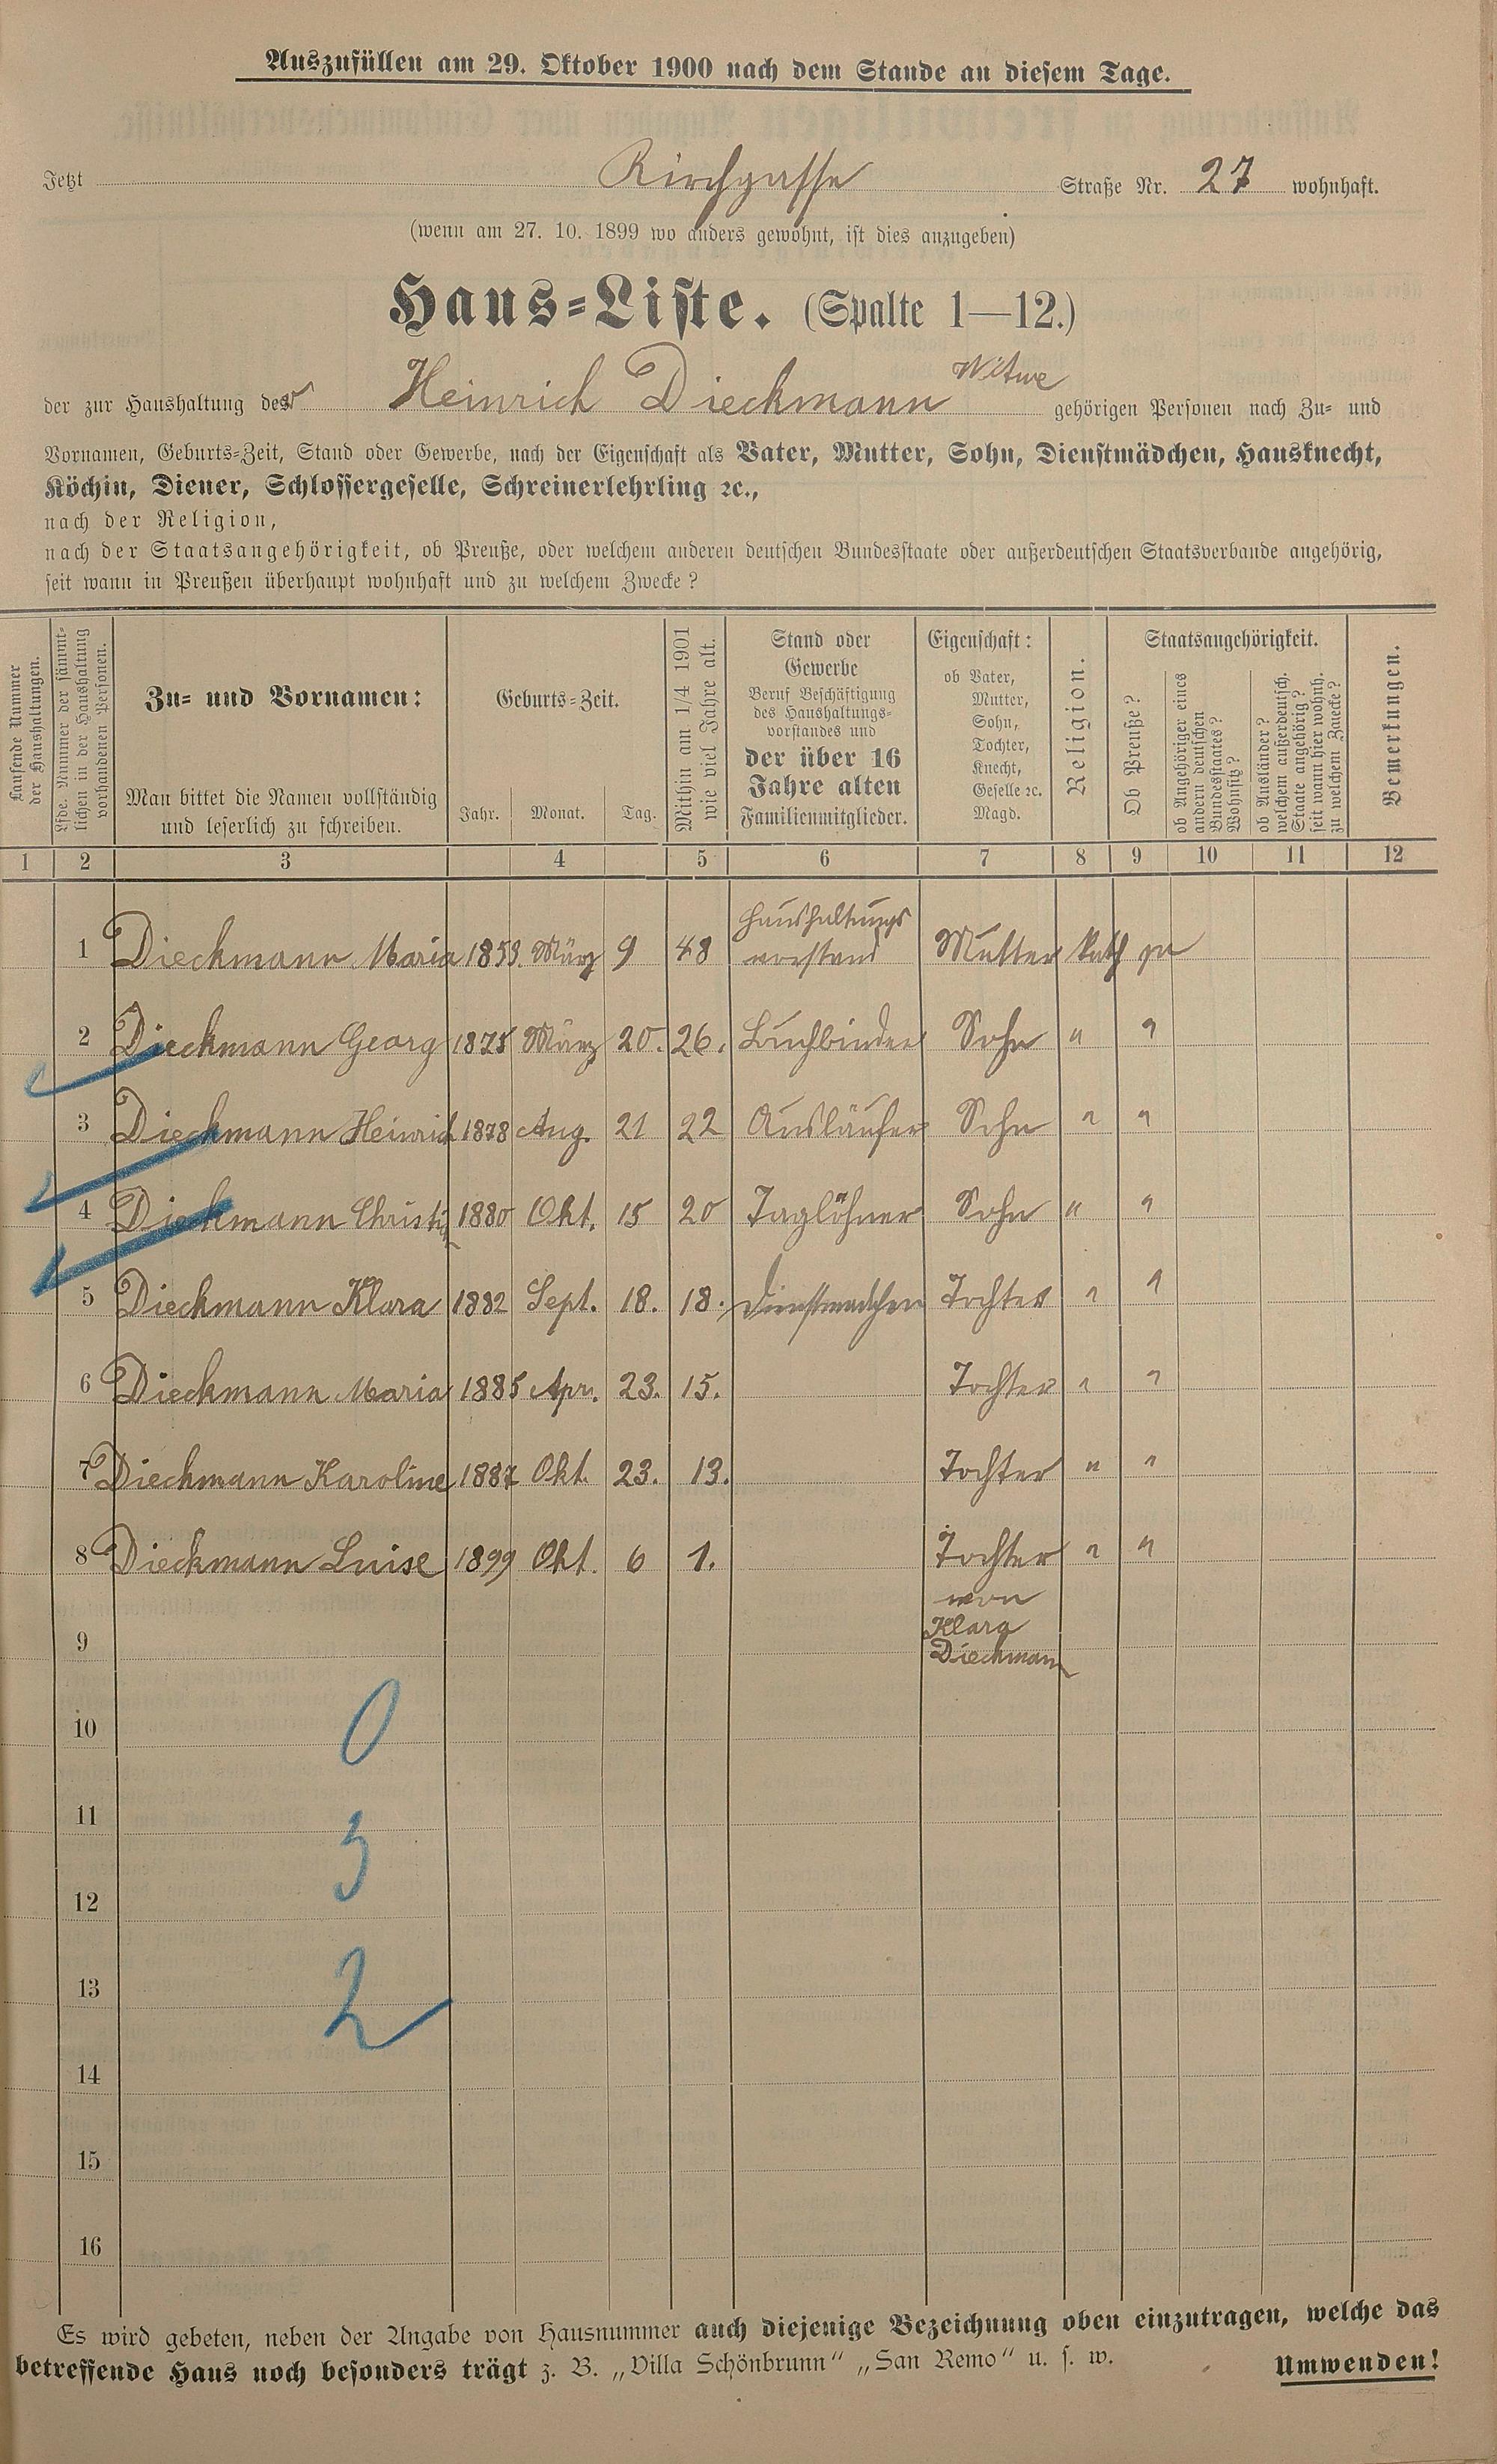 Auszufüllen am 29. Oktober 1900 nach dem Stande an diesem Tage.
Jetzt Kirchgasse Straße Nr. 27 wohnhaft.
(wenn am 27. 10. 1899 wo anders gewohnt, ist dies anzugeben)
Haus=Liste. (Spalte 1—12.)
Witwe
der zur Haushaltung der Heinrich Dieckmann gehörigen Personen nach Zu= und
Vornamen, Geburts=Zeit, Stand oder Gewerbe, nach der Eigenschaft als Vater, Mutter, Sohn, Dienstmädchen, Hausknecht,
Köchin, Diener, Schlossergeselle, Schreinerlehrling ꝛc.,
nach der Religion,
nach der Staatsangehörigkeit, ob Preuße, oder welchem anderen deutschen Bundesstaate oder außerdeutschen Staatsverbande angehörig,
seit wann in Preußen überhaupt wohnhaft und zu welchem Zwecke?
Laufende Nummer
der Haushaltungen.
Lfde. Nummer der sämmt-
lichen in der Haushaltung
vorhandenen Personen.
Zu= und Vornamen:
Man bittet die Namen vollständig
und leserlich zu schreiben.
Geburts=Zeit.
Jahr. Monat. Tag.
Mithin am 1/4 1901
wie viel Jahre alt.
Stand oder
Gewerbe
Beruf Beschäftigung
des Haushaltungs=
vorstandes und
der über 16
Jahre alten
Familienmitglieder.
Eigenschaft:
ob Vater,
Mutter,
Sohn,
Tochter,
Knecht,
Geselle ꝛc.
Magd.
Religion.
Staatsangehörigkeit.
Ob Preuße?
ob Angehöriger eines
andern deutschen
Bundesstaates?
Wohnsitz?
ob Ausländer?
welchem außerdeutsch.
Staate angehörig?
seit wann hier wohnh.
zu welchem Zwecke?
Bemerkungen.
1 2 3 4 5 6 7 8 9 10 11 12
Haushaltungs
1 Dieckmann Maria 1853 März 9 48 vorstand Mutter Kath ja
2 Dieckmann Georg 1875 März 20. 26. Buchbinder Sohn " "
3 Dieckmann Heinrich 1878 Aug. 21 22 Ausläufer Sohn " "
4 Dieckmann Christ 1880 Okt. 15 20 Taglöhner Sohn " "
5 Dieckmann Klara 1882 Sept. 18. 18. Dienstmädchen Tochter " "
6 Dieckmann Maria 1885 Apr. 23. 15. Tochter " "
7 Dieckmann Karoline 1887 Okt. 23. 13. Tochter " "
8 Dieckmann Luise 1899 Okt. 6 1. Tochter " "
von
Klara
9 Dieckmann
10 0
11
3
12
13 2
14
15
16
Es wird gebeten, neben der Angabe von Hausnummer auch diejenige Bezeichnung oben einzutragen, welche das
betreffende Haus noch besonders trägt z. B. „Villa Schönbrunn“ „San Remo“ u. s. w. Umwenden!